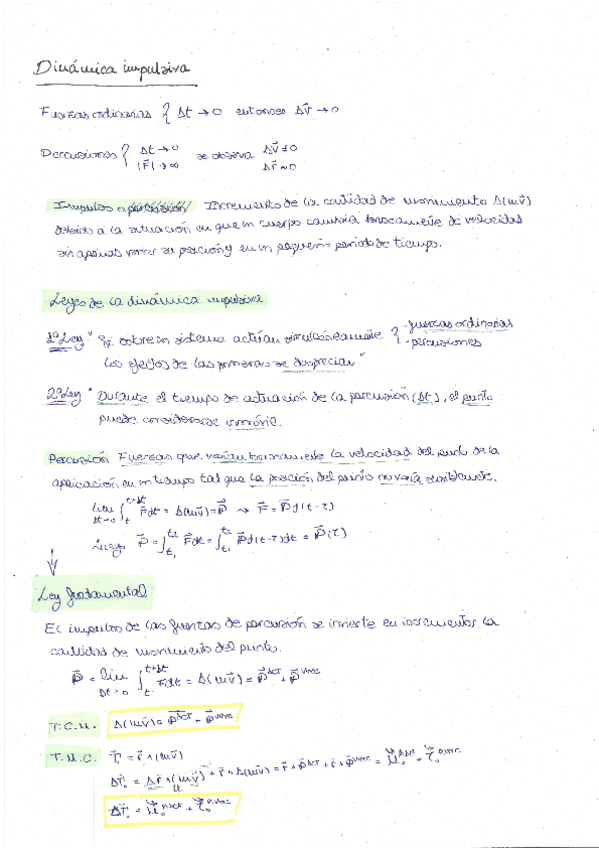 Dinámica impulsiva
Fuerzas ordinarias { Δt → 0 entonces Δv⃗ → 0
Percusiones { Δt → 0 |F⃗| → ∞ se observa Δv⃗ ≠ 0 Δr⃗ ≈ 0
Impulso o percusión Incremento de la cantidad de movimiento Δ(mv⃗)
debido a la situación en que un cuerpo cambia bruscamente de velocidad
sin apenas variar su posición y en un pequeño periodo de tiempo.
Leyes de la dinámica impulsiva
1ª Ley "Si sobre un sistema actúan simultáneamente { -fuerzas ordinarias -percusiones
los efectos de las primeras se desprecian"
2ª Ley "Durante el tiempo de actuación de la percusión (Δt), el punto
puede considerarse inmóvil.
Percusión Fuerzas que varían bruscamente la velocidad del punto de la
aplicación en un tiempo tal que la posición del punto no varía sensiblemente.
lim Δt→0 ∫ₜ^(t+Δt) F⃗dt = Δ(mv⃗) = P⃗ → F⃗ = P⃗ δ(t-τ)
Luego P⃗ = ∫_(t₁)^(t₂) F⃗dt = ∫_(t₁)^(t₂) P⃗ δ(t-τ)dt = P⃗(τ)
Ley fundamental
El impulso de las fuerzas de percusión se invierte en incrementar la
cantidad de movimiento del punto.
P⃗ = lim Δt→0 ∫ₜ^(t+Δt) F⃗dt = Δ(mv⃗) = P⃗ᵈᵃᶜᵗ + P⃗ᵛⁱⁿᶜ
T.C.M. Δ(mv⃗) = P⃗ᵈᵃᶜᵗ + P⃗ᵛⁱⁿᶜ
T.M.C. = r⃗ ∧ (mv⃗)
= Δr⃗ ∧ (mv⃗) + r⃗ ∧ Δ(mv⃗) =